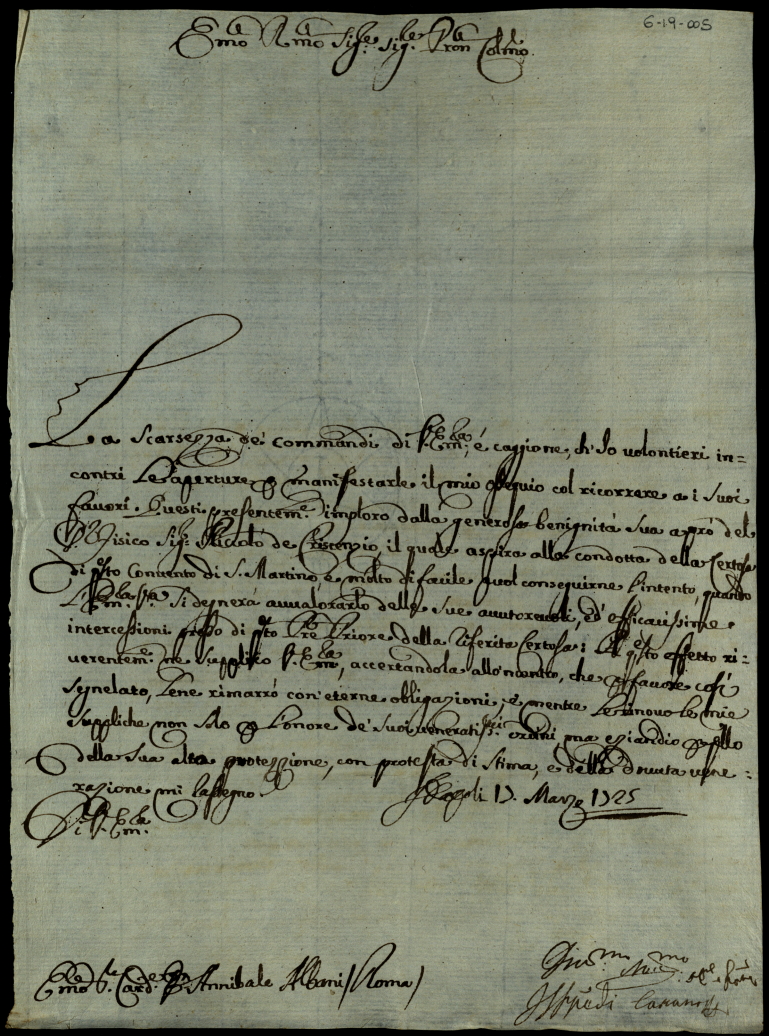 6-19-005
Emo Rmo Sig.re Sig.re Pron Colmo
La Scarsezza de' commandi di V. Em.za, é caggione, ch'Io volontieri in=
contri Le aperture manifestarle il mio ossequio col ricorrere a i suoi
favori. Questi presentem.e imploro dalla generosa benignitá Sua a pró del
Fisico Sig.r Niccoló de Crescenzio, il quale aspira alla condotta della Certosa
di q.sto Convento di S. Martino, e molto di facile puol conseguirne l'intento, quando
V. Em.za Si degnerá avvalorarlo delle Sue auutorevoli, ed' efficacissime
intercessioni presso di q.sto P.re Priore della riferita Certosa; Al q.sto effetto ri=
verentem.e ne Supplico V. Em.za, accertandola che favore cosí
segnelato, Le ne rimarró con eterne obligazioni; e mentre Le rinovo le mie
Suppliche non solo L'onore de' Suoi veneratiss.mi ordini, ma eziandio q.llo
della Sua alta protezzione, con protesta di Stima, e della dovuta vene=
razione mi rassegno.
Napoli 17. Marzo 1725
Di V. Em.za
Emo S.r Card.le Annibale Albani (Roma)